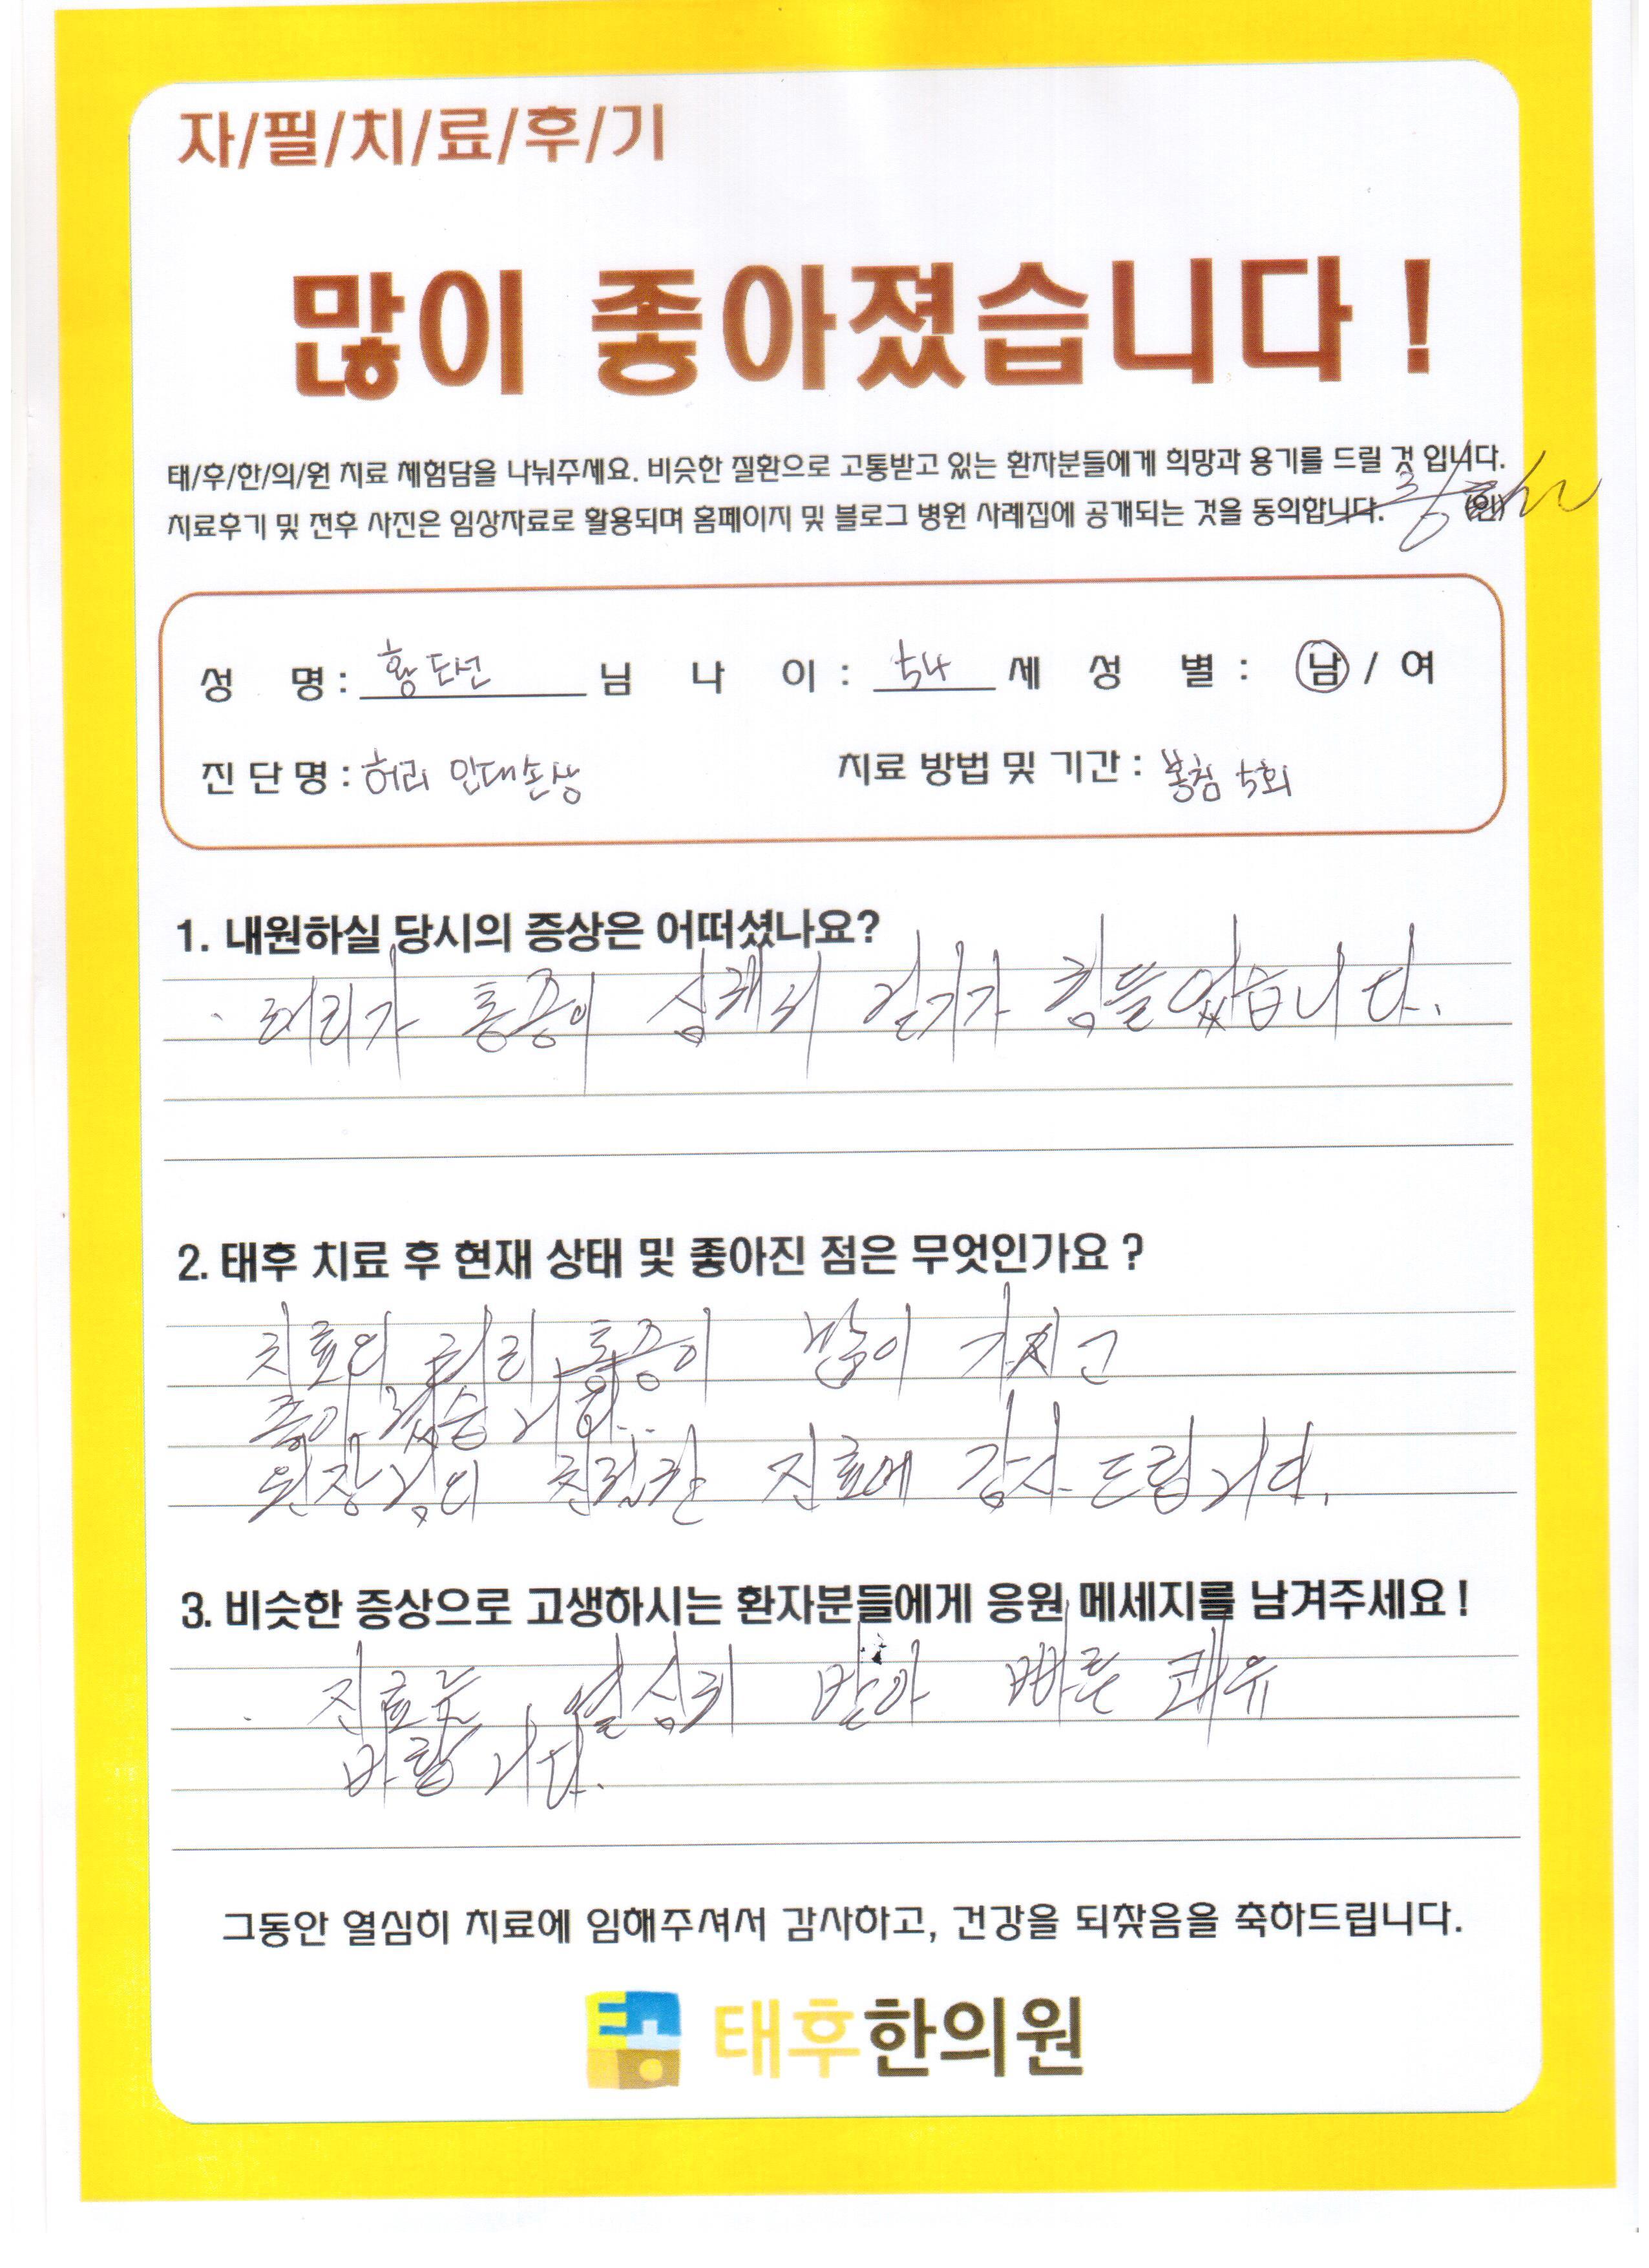 자/필/치/료/후/기
많이 좋아졌습니다 !
태/후/한/의/원 치료 체험담을 나눠주세요. 비슷한 질환으로 고통받고 있는 환자분들에게 희망과 용기를 드릴 것 입니다.
치료후기 및 전후 사진은 임상자료로 활용되며 홈페이지 및 블로그 병원 사례집에 공개되는 것을 동의합니다. (인)
성 명 : 황도선 님 나 이 : 54 세 성 별 : 남 / 여
진 단 명 : 허리 인대손상 치료 방법 및 기간 : 봉침 5회
1. 내원하실 당시의 증상은 어떠셨나요?
· 허리가 통증이 심해서 걷기가 힘들었습니다.
2. 태후 치료 후 현재 상태 및 좋아진 점은 무엇인가요 ?
치료의 허리 통증이 많이 가시고
좋아졌습니다.
원장님의 친절한 진료에 감사드립니다.
3. 비슷한 증상으로 고생하시는 환자분들에게 응원 메세지를 남겨주세요 !
· 진료는 열심히 받아 빠른 쾌유
바랍니다.
그동안 열심히 치료에 임해주셔서 감사하고, 건강을 되찾음을 축하드립니다.
태후한의원